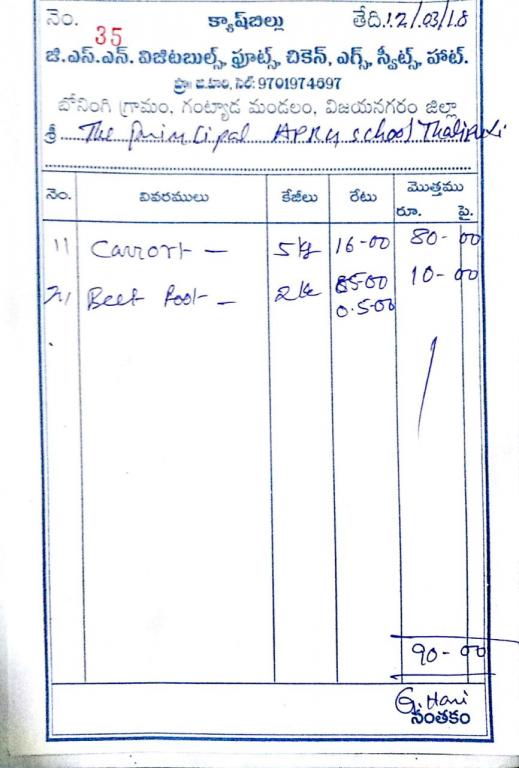 నెం. 35 క్యాష్‌బిల్లు తేది: 12/03/18
జి.ఎస్.ఎన్. విజిటబుల్స్, ఫ్రూట్స్, చికెన్, ఎగ్స్, స్వీట్స్, హాట్.
ప్రొ: జి.హరి, సెల్: 9701974697
బోనింగి గ్రామం, గంట్యాడ మండలం, విజయనగరం జిల్లా
శ్రీ The Principal APRM school Thatipudi
నెం. వివరములు కేజీలు రేటు మొత్తము
రూ. పై.
1) Carrort - 5 kg 16-00 80-00
2) Beet Root - 2 kg 05-00 10-00
0.5-00
90-00
G. Hari
సంతకం